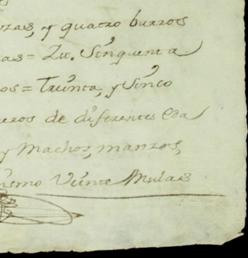 y quatro burros
= Yt. Sinquenta
os = Treinta, y Sinco
de diferentes Eda
y Machos, manzos,
Veinte Mulas